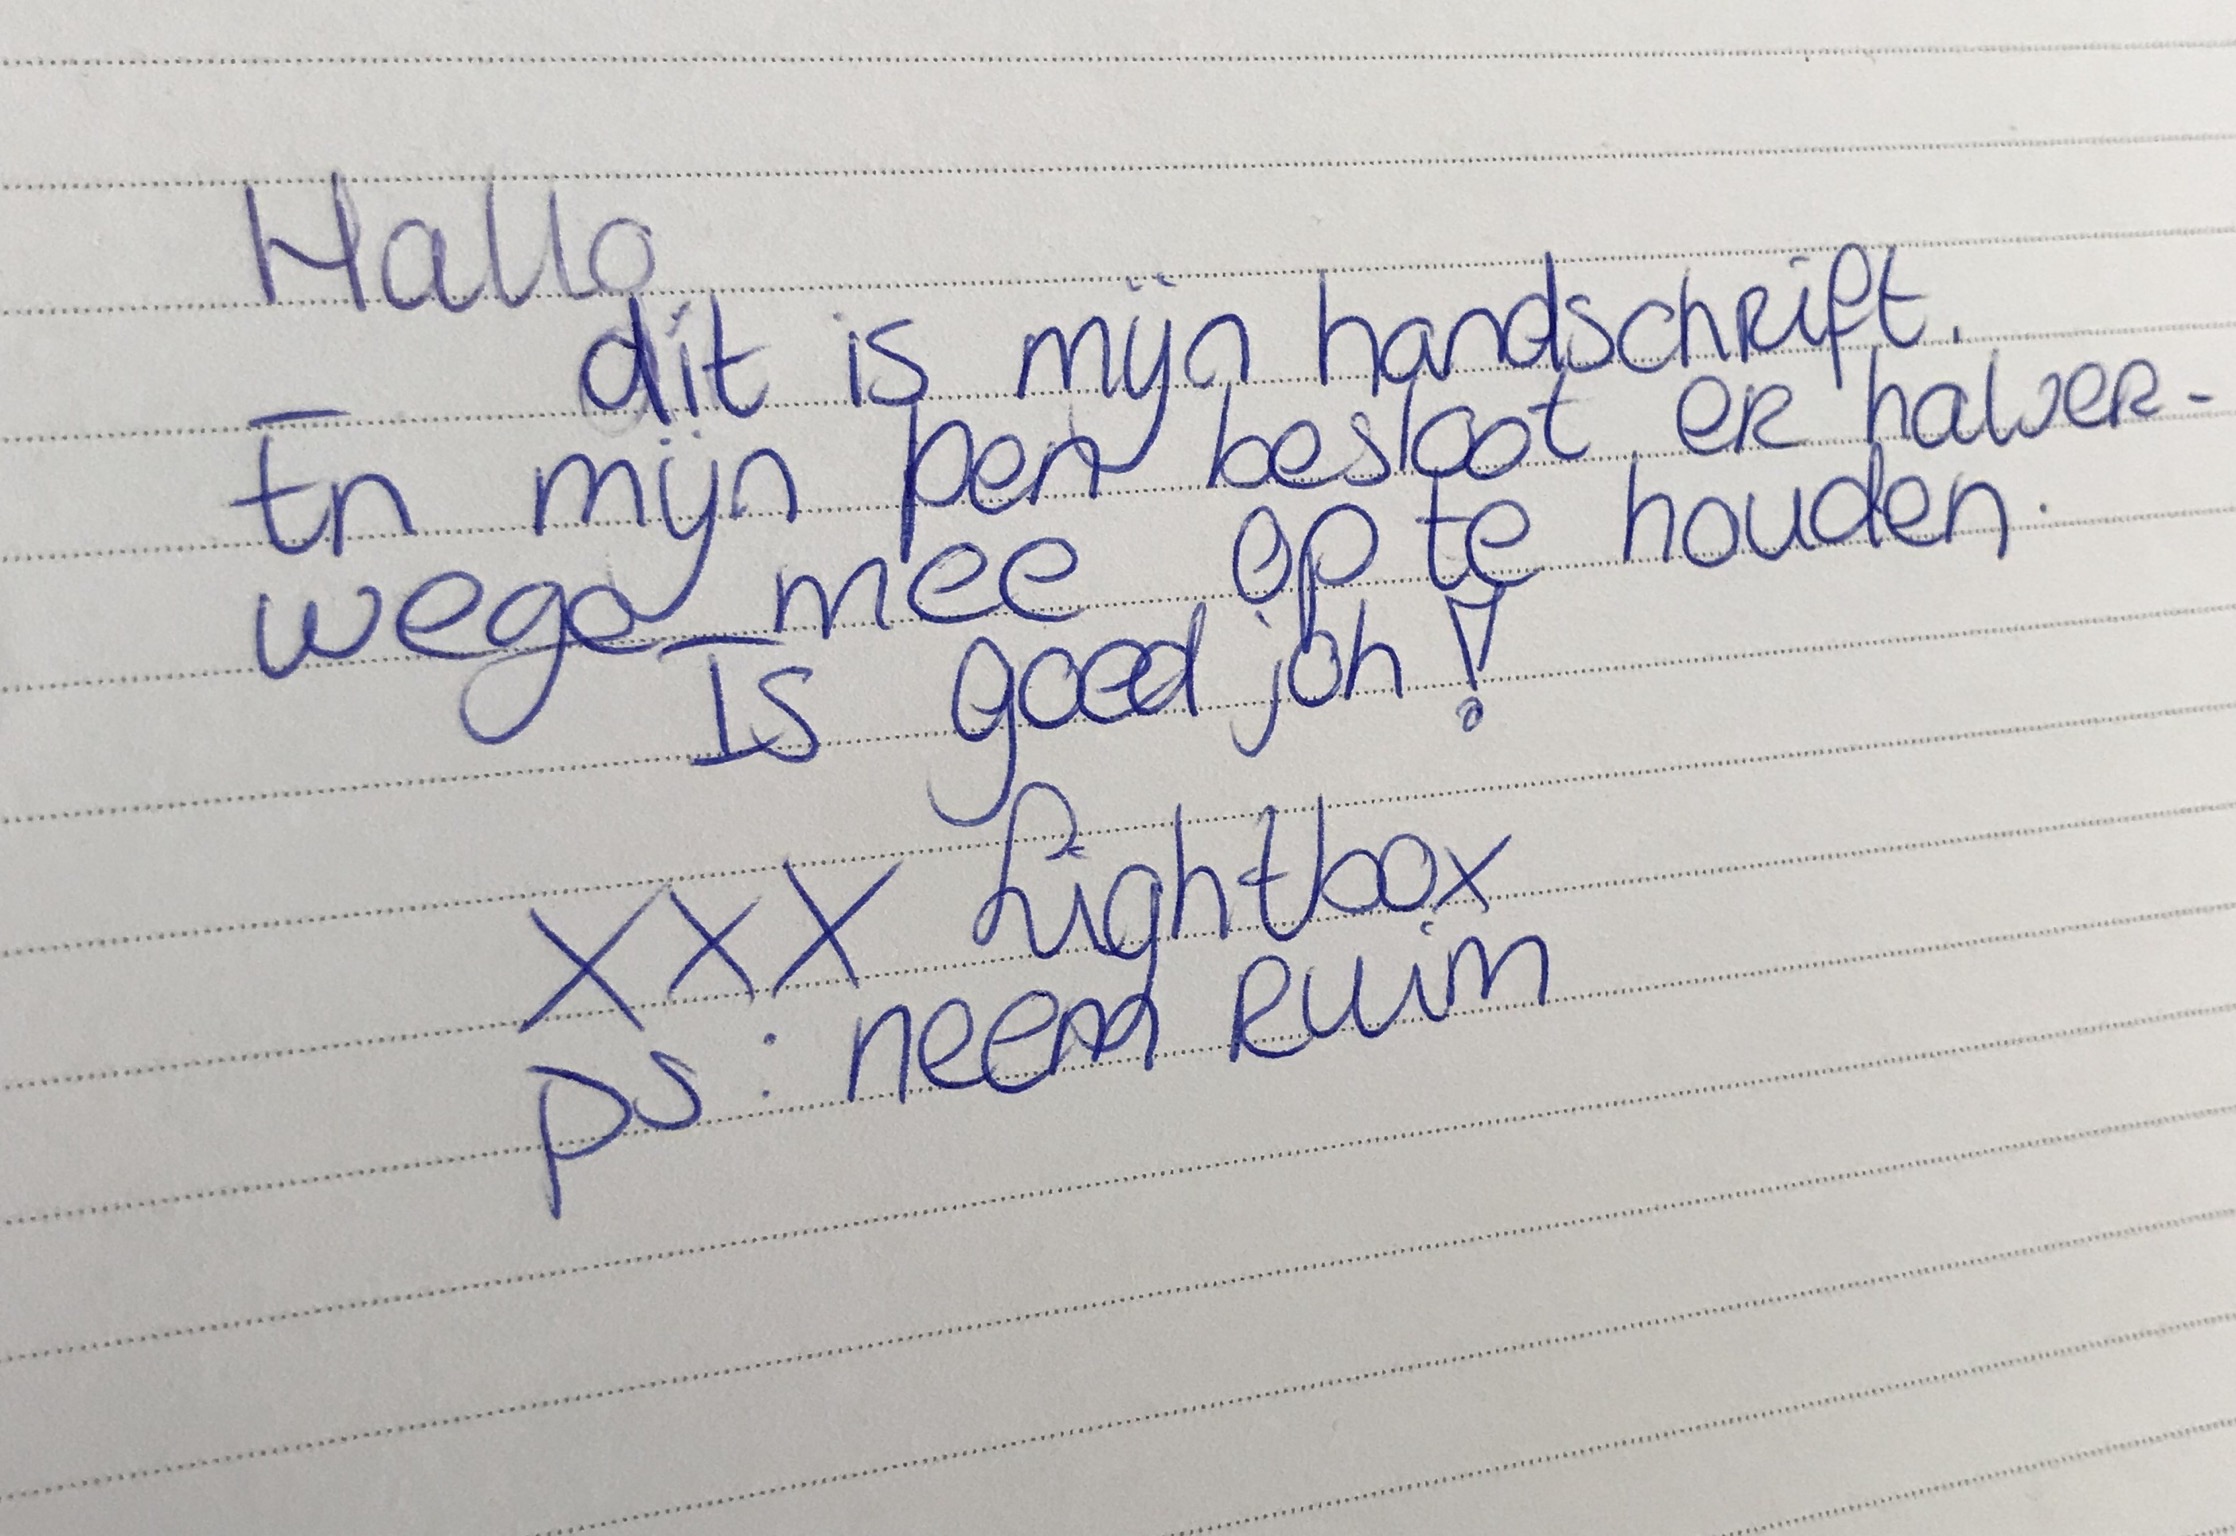 Hallo
dit is mijn handschrift.
En mijn pen besloot er halver-
wege mee op te houden.
Is goed joh!
XXX Lightbox
ps: neem ruim